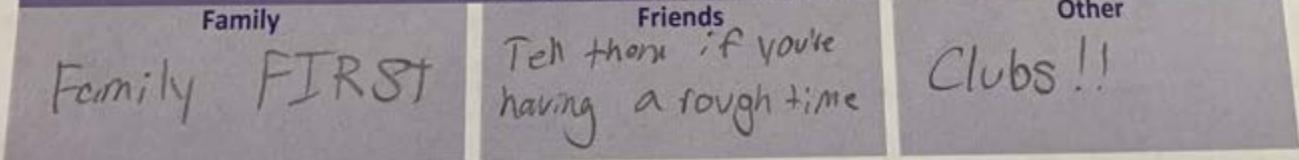 Family
Family FIRST
Friends
Tell them if you're
having a rough time
Other
Clubs!!